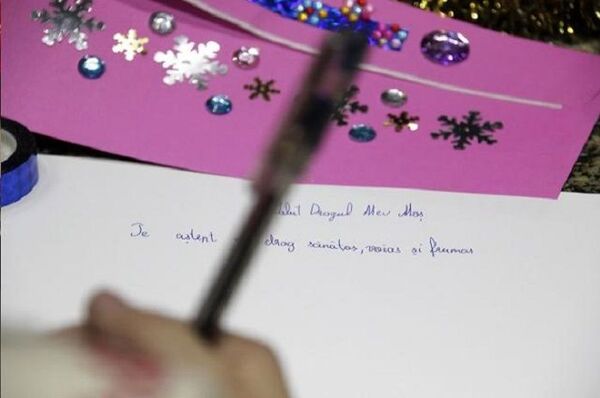 Dragul Meu Moș
Te aștept drag sănătos, voios și frumos